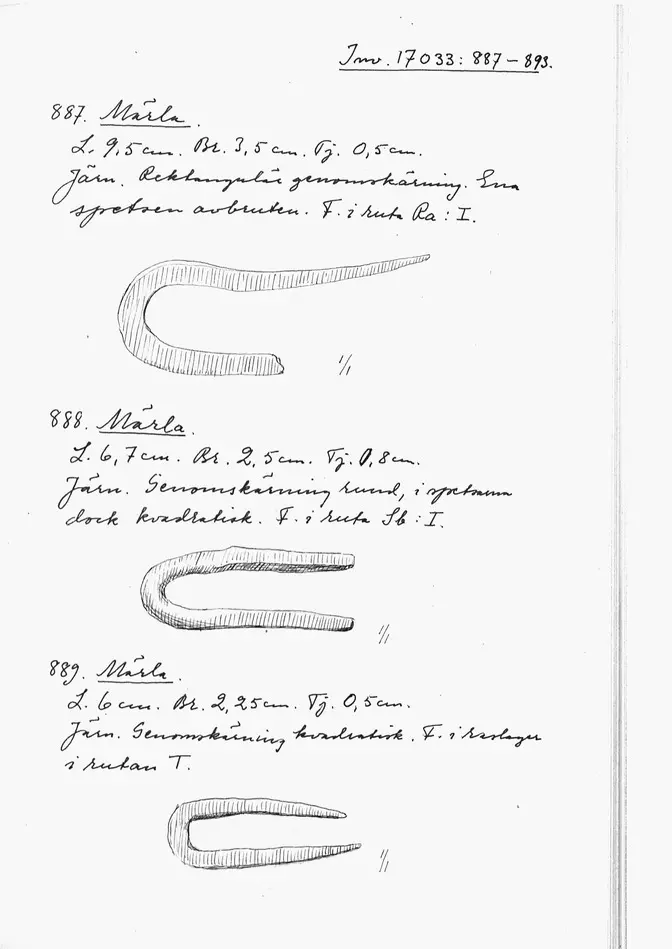 Inv. 17033: 887 – 893.
887. Märla.
L. 9,5 cm. Br. 3,5 cm. Tj. 0,5 cm.
Järn. Rektangulär genomskärning. Ena
spetsen avbruten. F. i ruta Ra : I.
1/1
888. Märla.
L. 6,7 cm. Br. 2,5 cm. Tj. 0,8 cm.
Järn. Genomskärning rund, i spetsarna
dock kvadratisk. F. i ruta Sb : I.
1/1
889. Märla.
L. 6 cm. Br. 2,25 cm. Tj. 0,5 cm.
Järn. Genomskärning kvadratisk. F. i raslager
i rutan T.
1/1